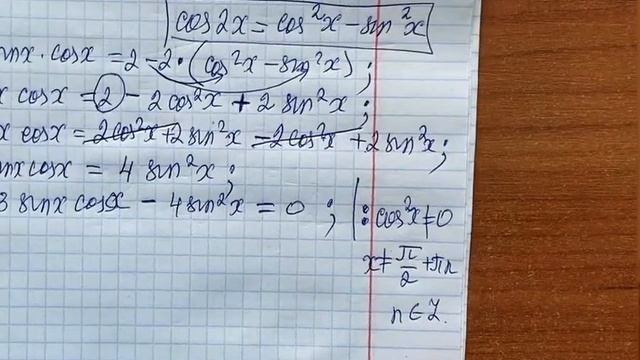 cos2x = cos²x - sin²x
sinx · cosx = 2 - 2 · (cos²x - sin²x) ;
x cosx = 2 - 2cos²x + 2sin²x ;
x cosx = 2cos²x + 2sin²x - 2cos²x + 2sin²x ;
sinx cosx = 4 sin²x ;
8 sinx cosx - 4 sin²x = 0 ; | : cos²x ≠ 0
x ≠ π/2 + πn
n ∈ Z.